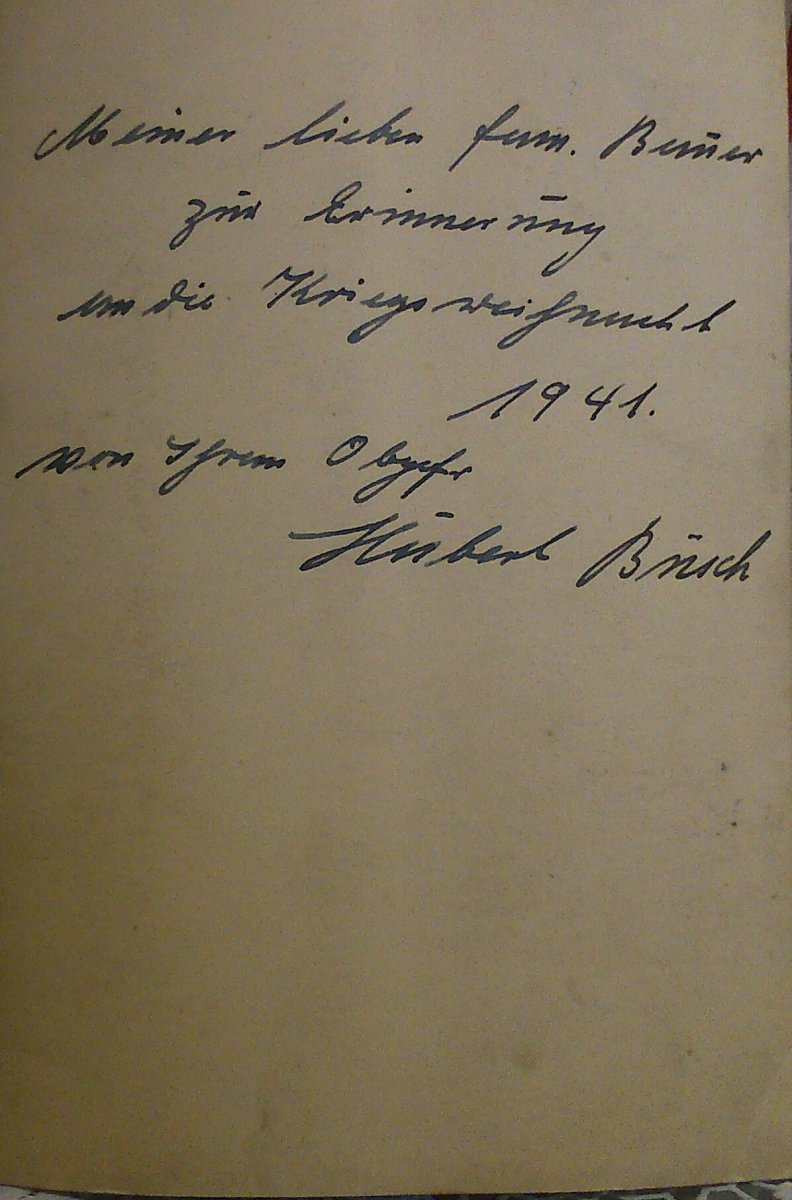 Meiner lieben Fam. Bauer
zur Erinnerung
an die Kriegsweihnacht
1941.
von Ihrem Obgefr
Hubert Busch